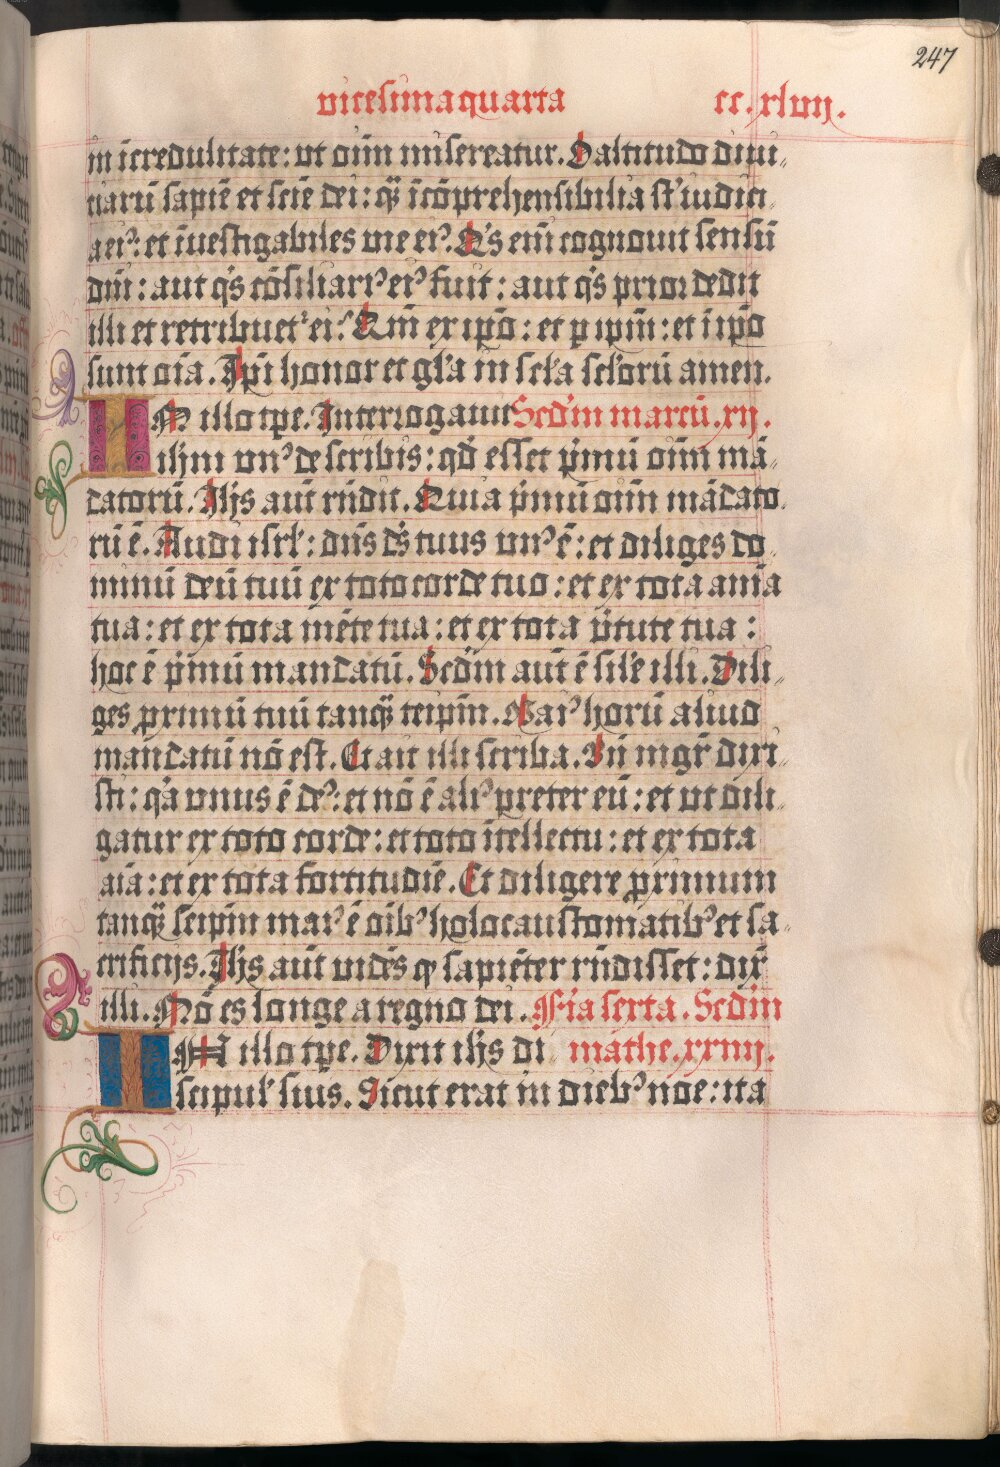 247
vicesimaquarta cc.xlvij.
in ic̄redulitate: ut oīm misereatur. O altitudo diui„
tiarū sapiē et sciē dei: q̄ īcōprehensibilia st' iudici
a eiꝰ: et īuestigabiles vie eiꝰ. Q's enī cognouit sensū
dn̄i: aut q's cōsiliariꝰ eiꝰ fuit: aut q's prior dedit
illi et retribuet' ei. Qm̄ ex ip̄o: et p ip̄m: et ī ip̄o
sunt oīa. Ip̄i honor et gl'a in scl'a scl'orū amen.
IN illo tp̄e. Interrogauit Scd'm marcū.xij.
ih̄m vnꝰ de scribis: qd̄ esset p̄mū oīm mā„
datorū. Ih̄s aūt rn̄dit. Quia p̄mū oīm mādato„
rū ē. Audi isrl': dn̄s ds̄ tuus vnꝰ ē: et diliges do„
minū deū tuū ex toto corde tuo: et ex tota an̄ia
tua: et ex tota mēte tua: et ex tota v̄tute tua:
hoc ē p̄mū mandatū. Scd̄m aūt ē sil'e illi. Dili„
ges ꝓximū tuū tanq̄ teip̄m. Maiꝰ horū aliud
mandatū nō est. Et ait illi scriba. Bn̄ mgr̄ dixi„
sti: q'a vnus ē deꝰ: et nō ē aliꝰ preter eū: et ut dili„
gatur ex toto corde: et toto ītellectu: et ex tota
aīa: et ex tota fortitudīe. Et diligere ꝓximum
tanq̄ seip̄m maiꝰ ē oībꝰ holocaustomatibꝰ et sa„
crificijs. Ih̄s aūt vidēs ꝙ sapiēter rn̄disset: dix̄
illi. Nō es longe a regno dei. F'ia sexta. Scd̄m
IN illo tp̄e. Dixit ih̄s di mathe.xxiiij.
scipul' suis. Sicut erat in diebꝰ noe: ita